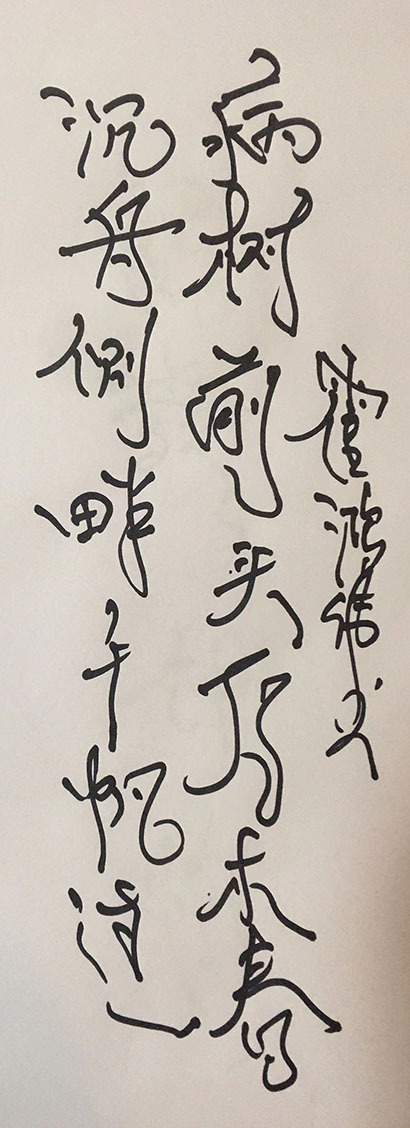 沉舟侧畔千帆过
病树前头万木春
鸿